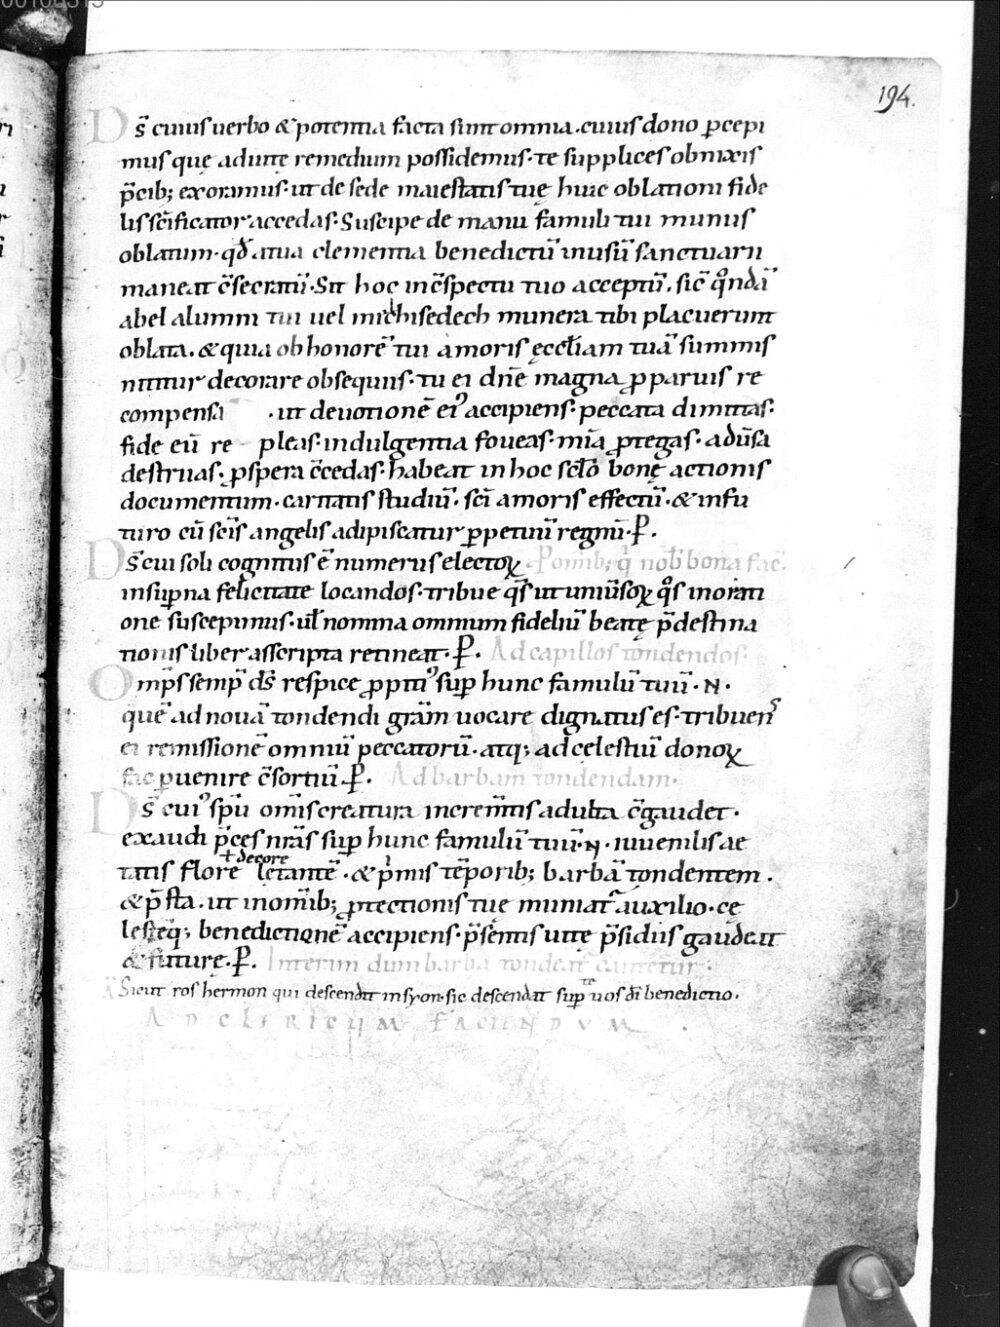 194.
Ds̄ cuius uerbo & potentia facta sunt omnia. cuius dono p̄cepi
mus quę ad uitę remedium possidemus· te supplices obnixis
p̄cib; exoramus· ut de sede maiestatis tuę huic oblationi fide
lis sc̄ificator accedas· Suscipe de manu famuli tui munus
oblatum· qđ a tua clementia benedictū inusū sanctuarii
maneat c̄secratū· Sit hoc inc̄spectu tuo acceptū. sic̄ qⁿdā
abel alumni tui uel melchisedech munera tibi placuerunt
oblata. & quia ob honorē tui amoris ęccłiam tuā summis
nititur decorare obsequiis· tu ei dn̄e magna p̱ paruis re
compensa · ut deuotionē ei⁹ accipiens· peccata dimittas·
fide eū re pleas· indulgentia foueas· mīa p̱tegas· aduersa
destruas· p̱spera c̄cedas· habeat in hoc sc̄lo bonę actionis
documentum· caritatis studiū· sc̄i amoris effectū· & infu
turo cū sc̄is angelis adipiscatur p̱petuū regnū· P̱.
Ds̄ cui soli cognitus ē numerus electoꝝ P omib; q nob bona fac̄.
insup̱na felicitate locandos· tribue qs̄ ut uniūsoꝝ qⁱs inorati
one suscepimus· uł nomina omnium fideliū beatę p̄destina
tionis liber asscripta retineat· P̱. Ad capillos tondendos·
Omp̄s semp̱ ds̄ respice p̱pitī⁹ sup̱ hunc famulū tuū· N·
quē ad nouā tondendi grām uocare dignatus es· tribuens
ei remissionē omniū peccatorū· atq; ad celestiū donoꝝ
fac p̱uenire c̄sortiū· P̱. Ad barbam tondendam·
Ds̄ cui⁹ sp̄u om̄is creatura increm̄tis adulta c̄gaudet·
exaudi p̄ces nr̄as sup̱ hunc famulū tuū· N· iuuenilis ae
+decore
tatis florē letantē· & pⁱmis tēporib; barbā tondentem·
& p̄sta· ut inom̄ib; p̱tectionis tuę muniat᷑ auxilio· cę
lesteq; benedictionē accipiens· p̄sentis uitę p̄sidiis gaudeat
& futurę· P̱. Interim dum barba tondet᷑ cantetur·
A Sicut ros hermon qui descendit insyon· sic descendat sup̱ uos dī benedictio·
te
AD CLERICUM FACIENDVM